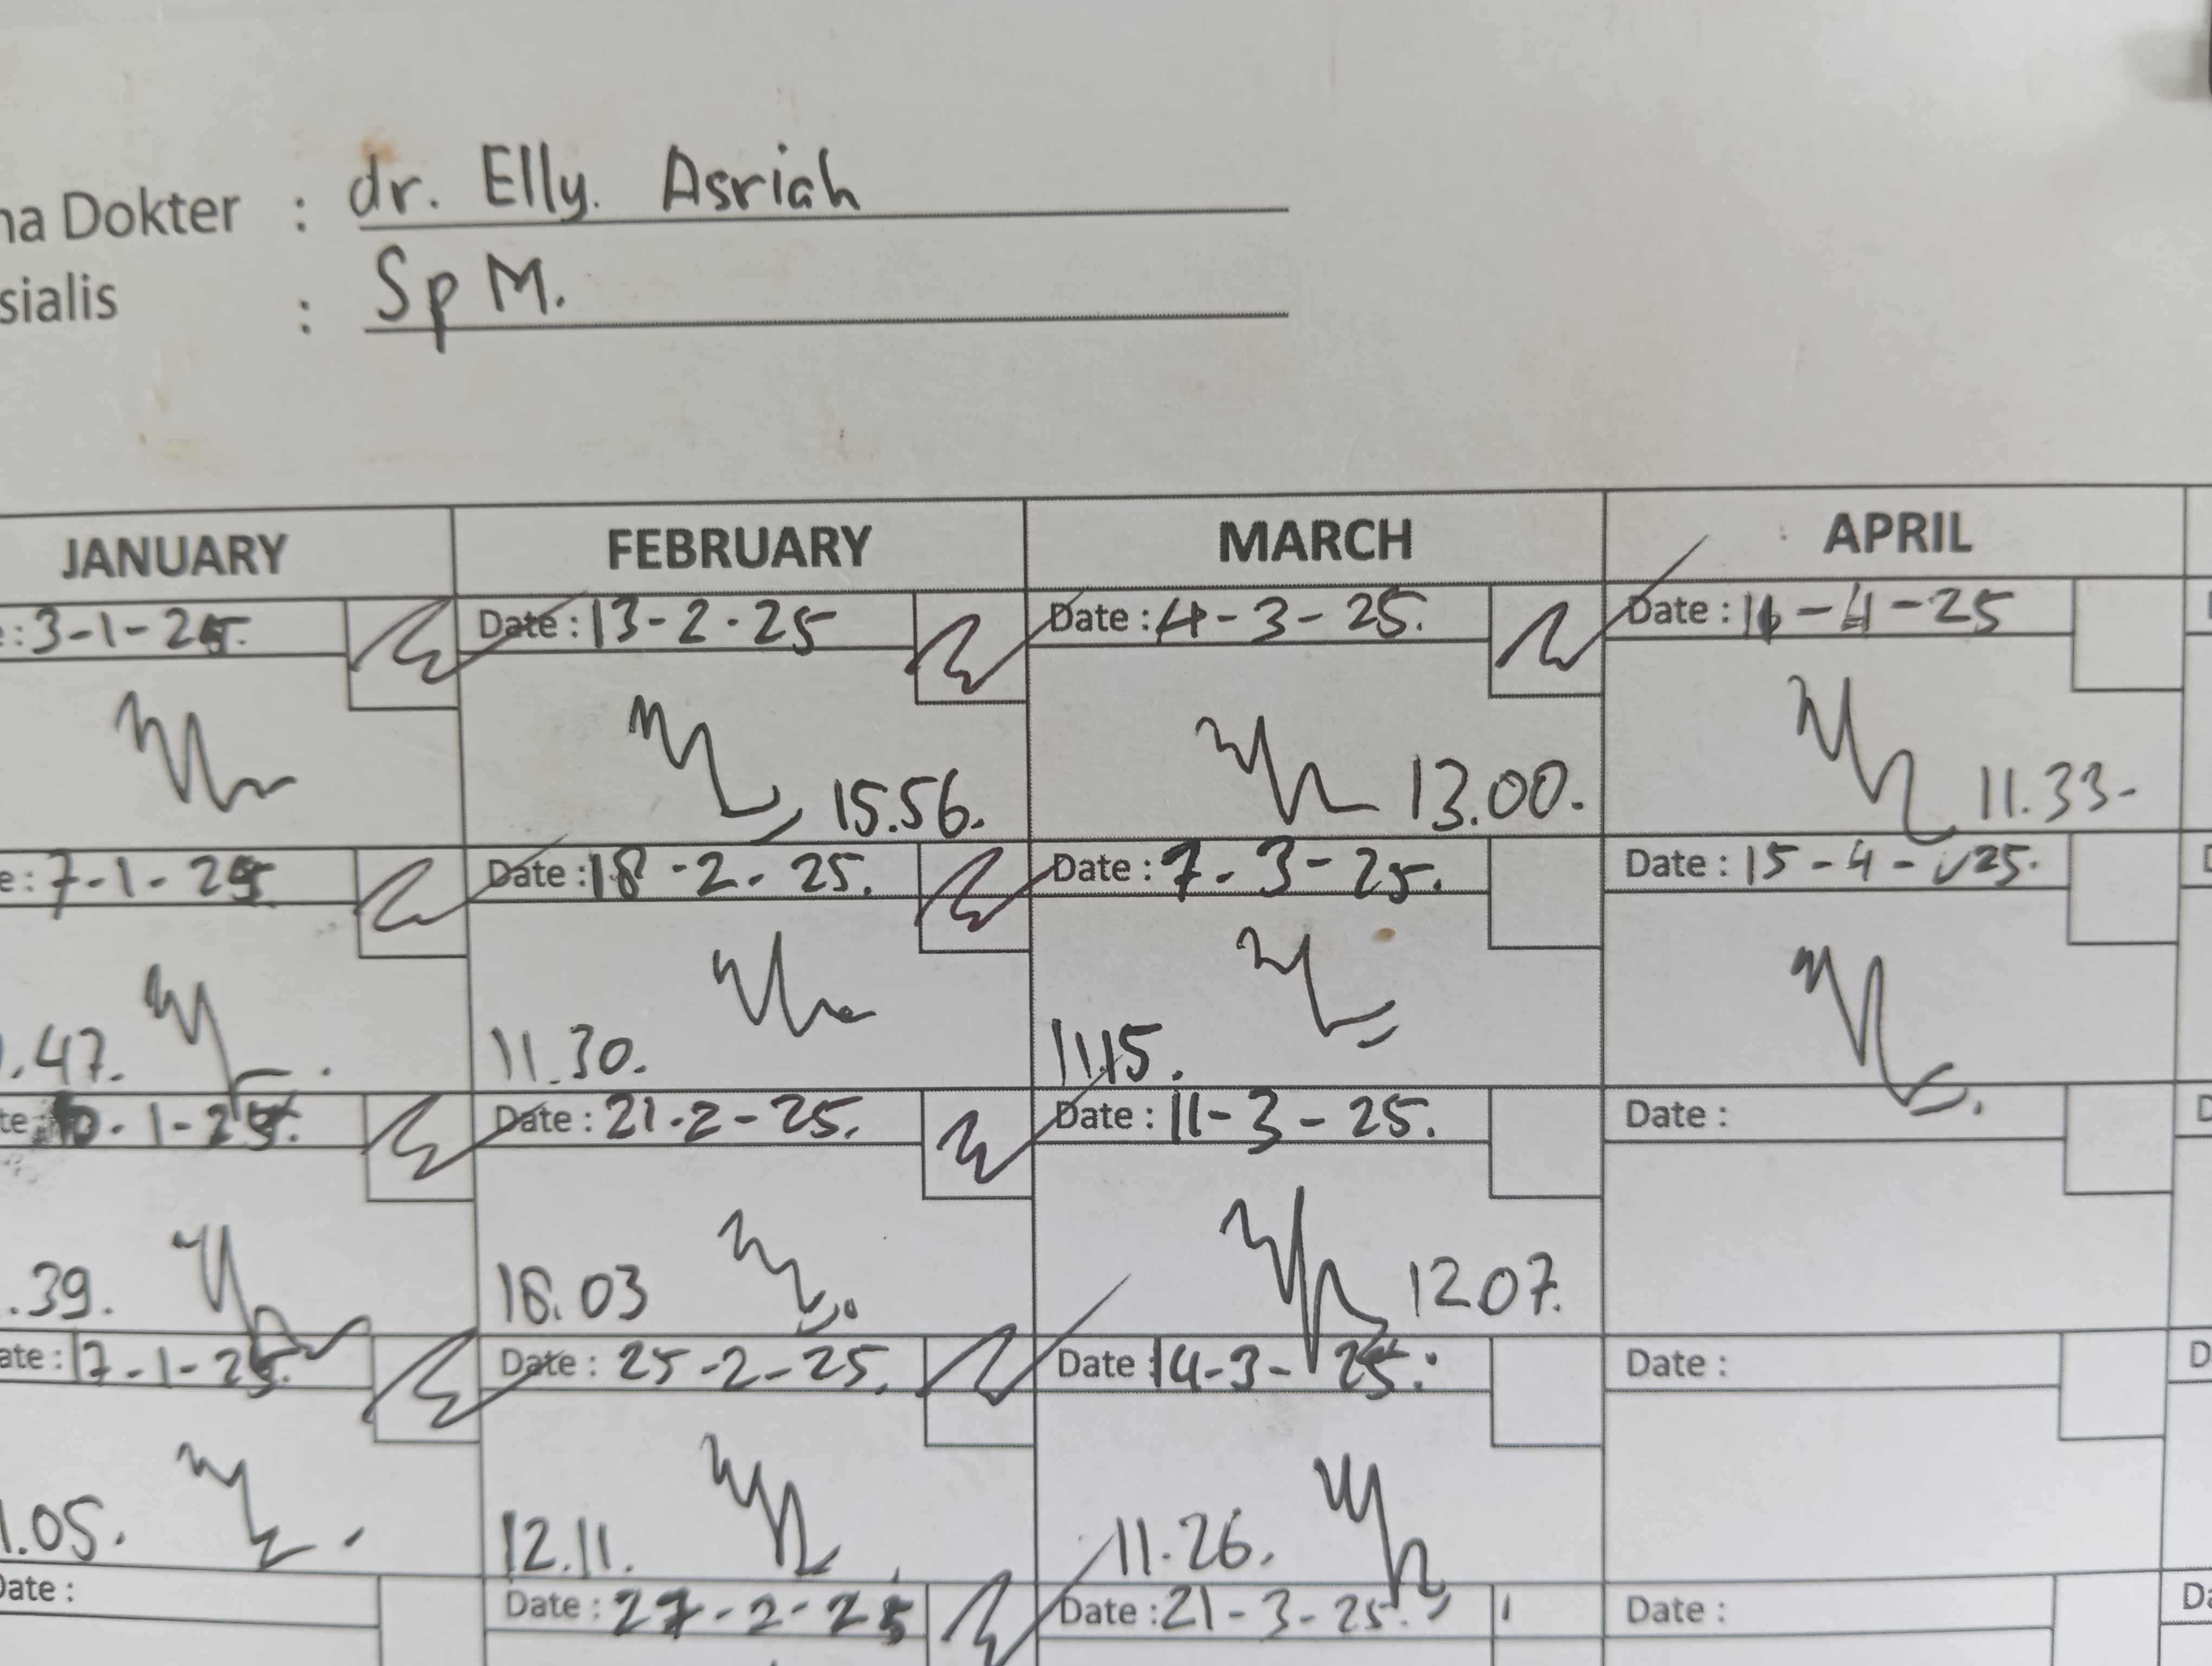 na Dokter : dr. Elly. Asriah
sialis : Sp M.
JANUARY FEBRUARY MARCH APRIL
e : 3-1-25. Date : 13-2-25 Date : 4-3-25. Date : -4-25
15.56. 13.00. 11.33-
e : 7-1-25 Date : 18-2-25. Date : 7-3-25. Date : 15-4-25.
.47. 11.30. 11.15.
te 10-1-25. Date : 21-2-25. Date : 11-3-25. Date :
.39. 18.03 12.07.
ate : 17-1-25. Date : 25-2-25. Date : 14-3-25. Date :
1.05. 12.11. 11.26.
Date : Date : 27-2-25 Date : 21-3-25. Date : Da